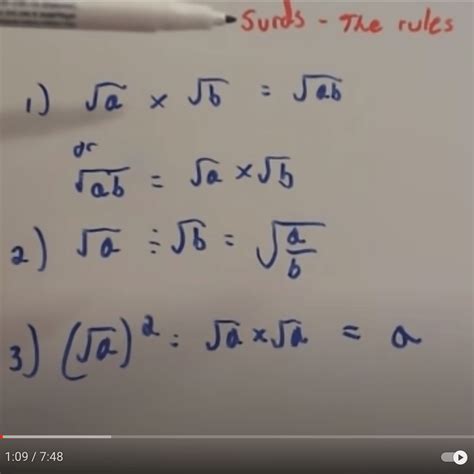 Surds - The rules
1) √a × √b = √ab
or
√ab = √a × √b
2) √a ÷ √b = √a/b
3) (√a)² = √a × √a = a
1:09 / 7:48